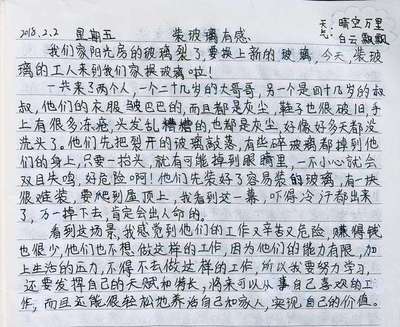 2018.2.2 星期五 装玻璃有感. 天气: 晴空万里 白云飘飘
我们家阳光房的玻璃裂了,要换上新的玻璃,今天,装玻
璃的工人来到我们家换玻璃啦!
一共来了两个人,一个二十几岁的大哥哥,另一个是四十几岁的叔
叔,他们的衣服皱巴巴的,而且都是灰尘,鞋子也很破旧,手
上有很多冻疮,头发乱糟糟的,也都是灰尘,好像好多天都没
洗头了。他们先把裂开的玻璃敲落,有些碎玻璃都掉到他
们的身上,只要一抬头,就有可能掉到眼睛里,一不小心就会
双目失鸣,好危险啊!他们先装好了容易装的玻璃,有一块
很难装,要爬到屋顶上,我看到这一幕,吓得冷汗都出来
了,万一掉下去,肯定会出人命的。
看到这场景,我感觉到他们的工作又辛苦又危险,赚得钱
也很少,他们也不想做这样的工作,因为他们的能力有限,加
上生活的压力,不得不去做这样的工作,所以我要努力学习,
还要发挥自己的天赋和特长,将来可以从事自己喜欢的工
作,而且还能很轻松地养活自己和家人,实现自己的价值。